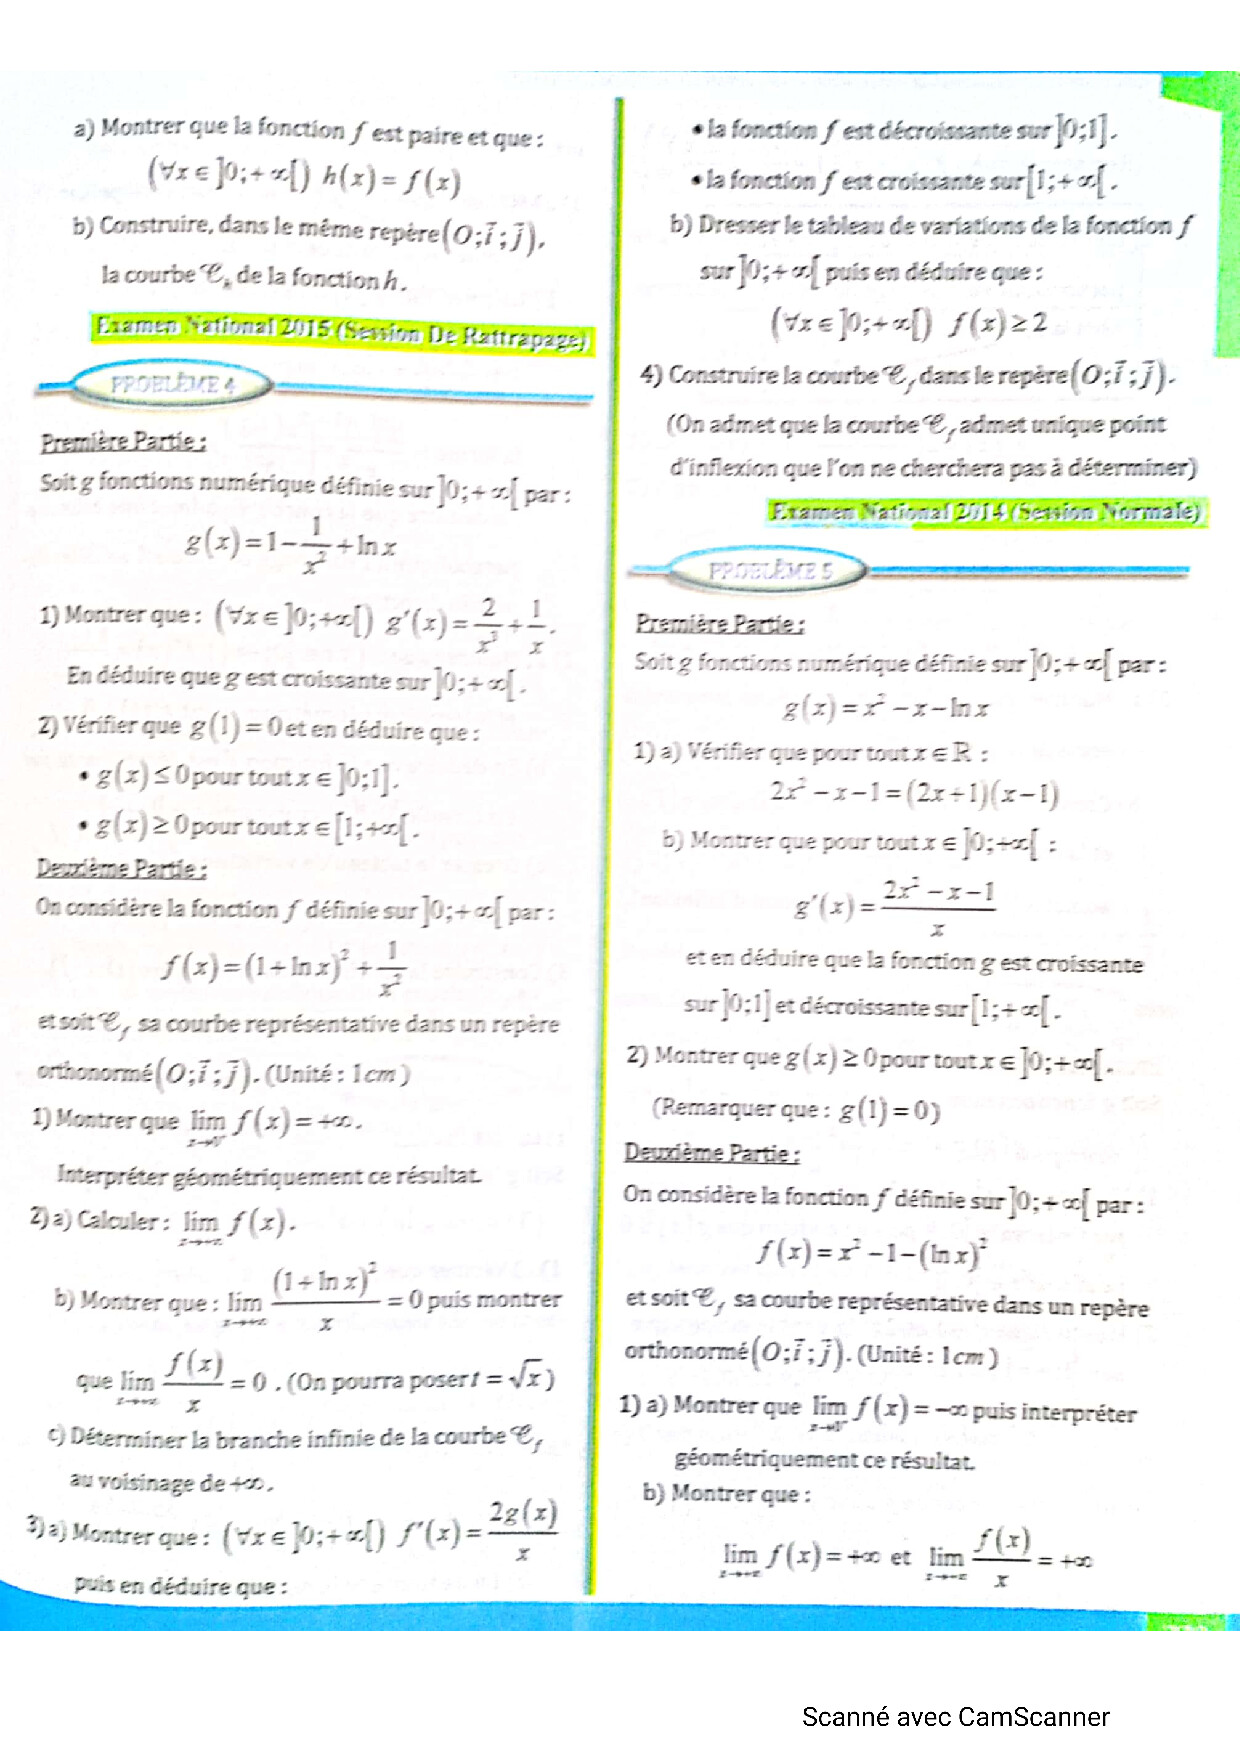 a) Montrer que la fonction f est paire et que :
(∀x ∈ ]0;+∞[) h(x) = f(x)
b) Construire, dans le même repère (O;i⃗;j⃗),
la courbe 𝒞ₕ de la fonction h.
Examen National 2015 (Session De Rattrapage)
PROBLÈME 4
Première Partie :
Soit g fonctions numérique définie sur ]0;+∞[ par :
g(x) = 1 − 1/x² + ln x
1) Montrer que : (∀x ∈ ]0;+∞[) g'(x) = 2/x³ + 1/x.
En déduire que g est croissante sur ]0;+∞[.
2) Vérifier que g(1) = 0 et en déduire que :
• g(x) ≤ 0 pour tout x ∈ ]0;1].
• g(x) ≥ 0 pour tout x ∈ [1;+∞[.
Deuxième Partie :
On considère la fonction f définie sur ]0;+∞[ par :
f(x) = (1 + ln x)² + 1/x²
et soit 𝒞f sa courbe représentative dans un repère
orthonormé (O;i⃗;j⃗). (Unité : 1cm)
1) Montrer que lim x→0⁺ f(x) = +∞.
Interpréter géométriquement ce résultat.
2) a) Calculer : lim x→+∞ f(x).
b) Montrer que : lim x→+∞ (1 + ln x)²/x = 0 puis montrer
que lim x→+∞ f(x)/x = 0 . (On pourra poser t = √x)
c) Déterminer la branche infinie de la courbe 𝒞f
au voisinage de +∞.
3) a) Montrer que : (∀x ∈ ]0;+∞[) f'(x) = 2g(x)/x
puis en déduire que :
• la fonction f est décroissante sur ]0;1].
• la fonction f est croissante sur [1;+∞[.
b) Dresser le tableau de variations de la fonction f
sur ]0;+∞[ puis en déduire que :
(∀x ∈ ]0;+∞[) f(x) ≥ 2
4) Construire la courbe 𝒞f dans le repère (O;i⃗;j⃗).
(On admet que la courbe 𝒞f admet unique point
d'inflexion que l'on ne cherchera pas à déterminer)
Examen National 2014 (Session Normale)
PROBLÈME 5
Première Partie :
Soit g fonctions numérique définie sur ]0;+∞[ par :
g(x) = x² − x − ln x
1) a) Vérifier que pour tout x ∈ ℝ :
2x² − x − 1 = (2x + 1)(x − 1)
b) Montrer que pour tout x ∈ ]0;+∞[ :
g'(x) = (2x² − x − 1)/x
et en déduire que la fonction g est croissante
sur ]0;1] et décroissante sur [1;+∞[.
2) Montrer que g(x) ≥ 0 pour tout x ∈ ]0;+∞[.
(Remarquer que : g(1) = 0)
Deuxième Partie :
On considère la fonction f définie sur ]0;+∞[ par :
f(x) = x² − 1 − (ln x)²
et soit 𝒞f sa courbe représentative dans un repère
orthonormé (O;i⃗;j⃗). (Unité : 1cm)
1) a) Montrer que lim x→0⁺ f(x) = −∞ puis interpréter
géométriquement ce résultat.
b) Montrer que :
lim x→+∞ f(x) = +∞ et lim x→+∞ f(x)/x = +∞
Scanné avec CamScanner